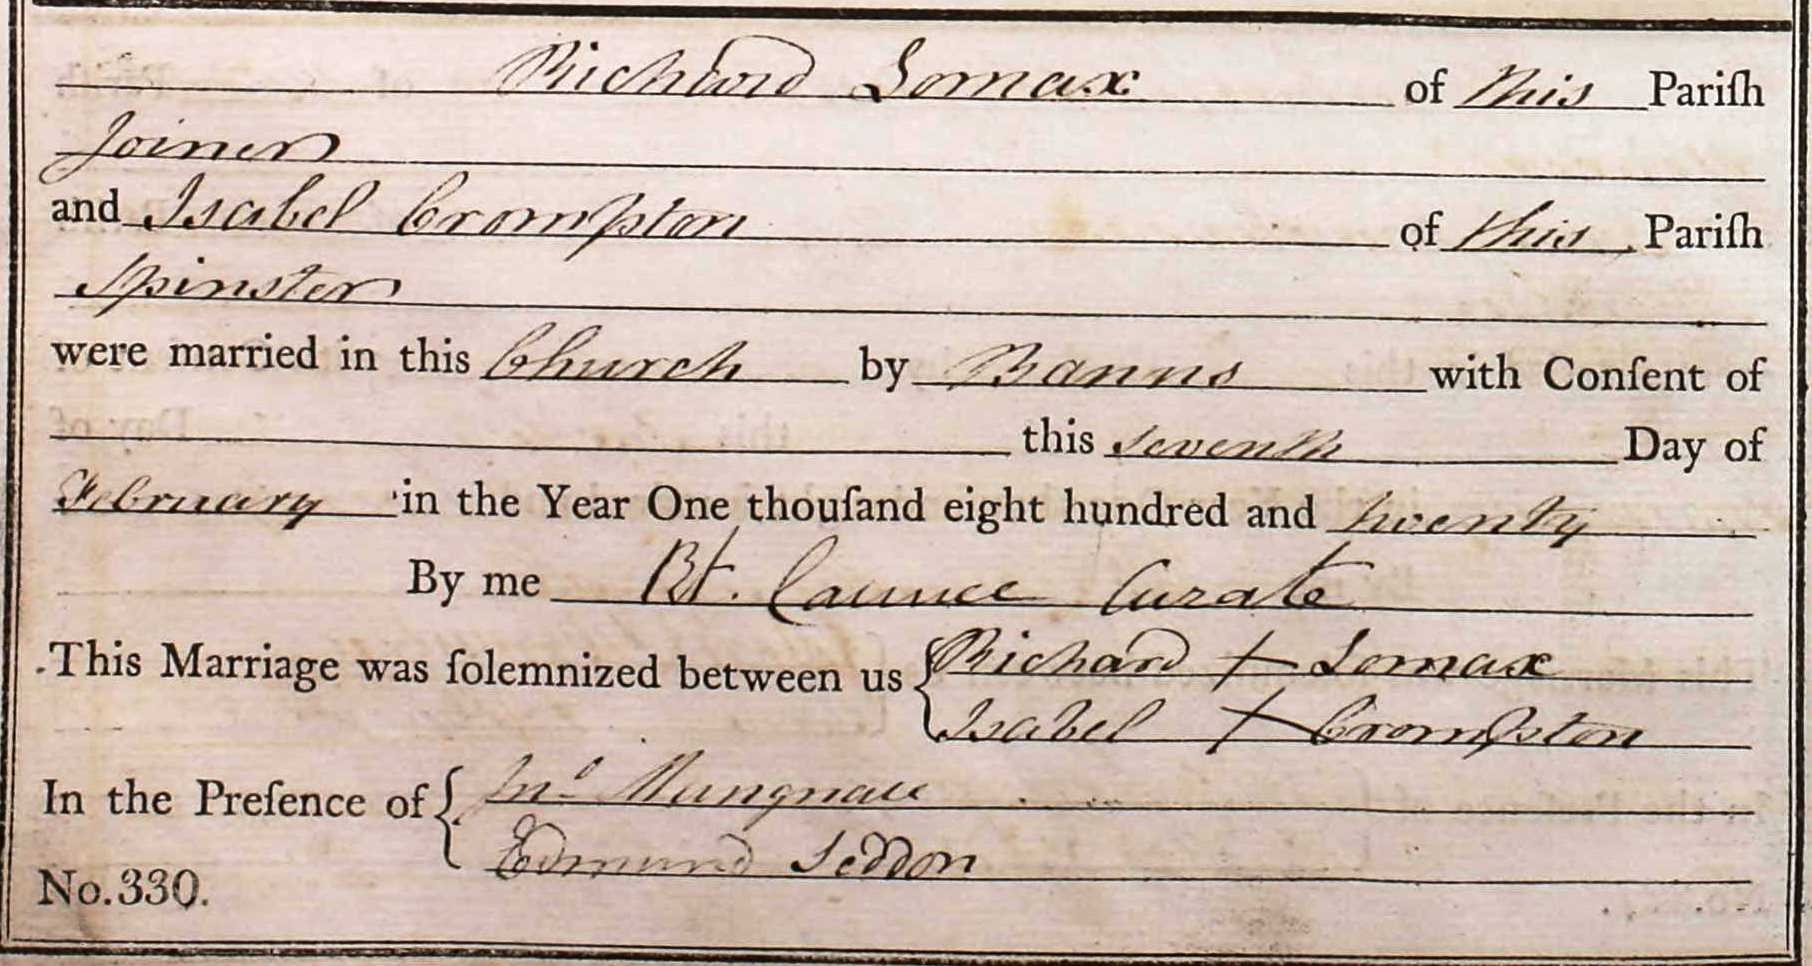 Richard Lomax of this Pariſh
Joiner
and Isabel Crompton of this Pariſh
Spinster
were married in this Church by Banns with Conſent of
this seventh Day of
February in the Year One thouſand eight hundred and twenty
By me Rt. Caunce Curate
This Marriage was ſolemnized between us { Richard + Lomax
Isabel + Crompton
In the Preſence of { Jno Mangnall
Edmund Seddon
No. 330.